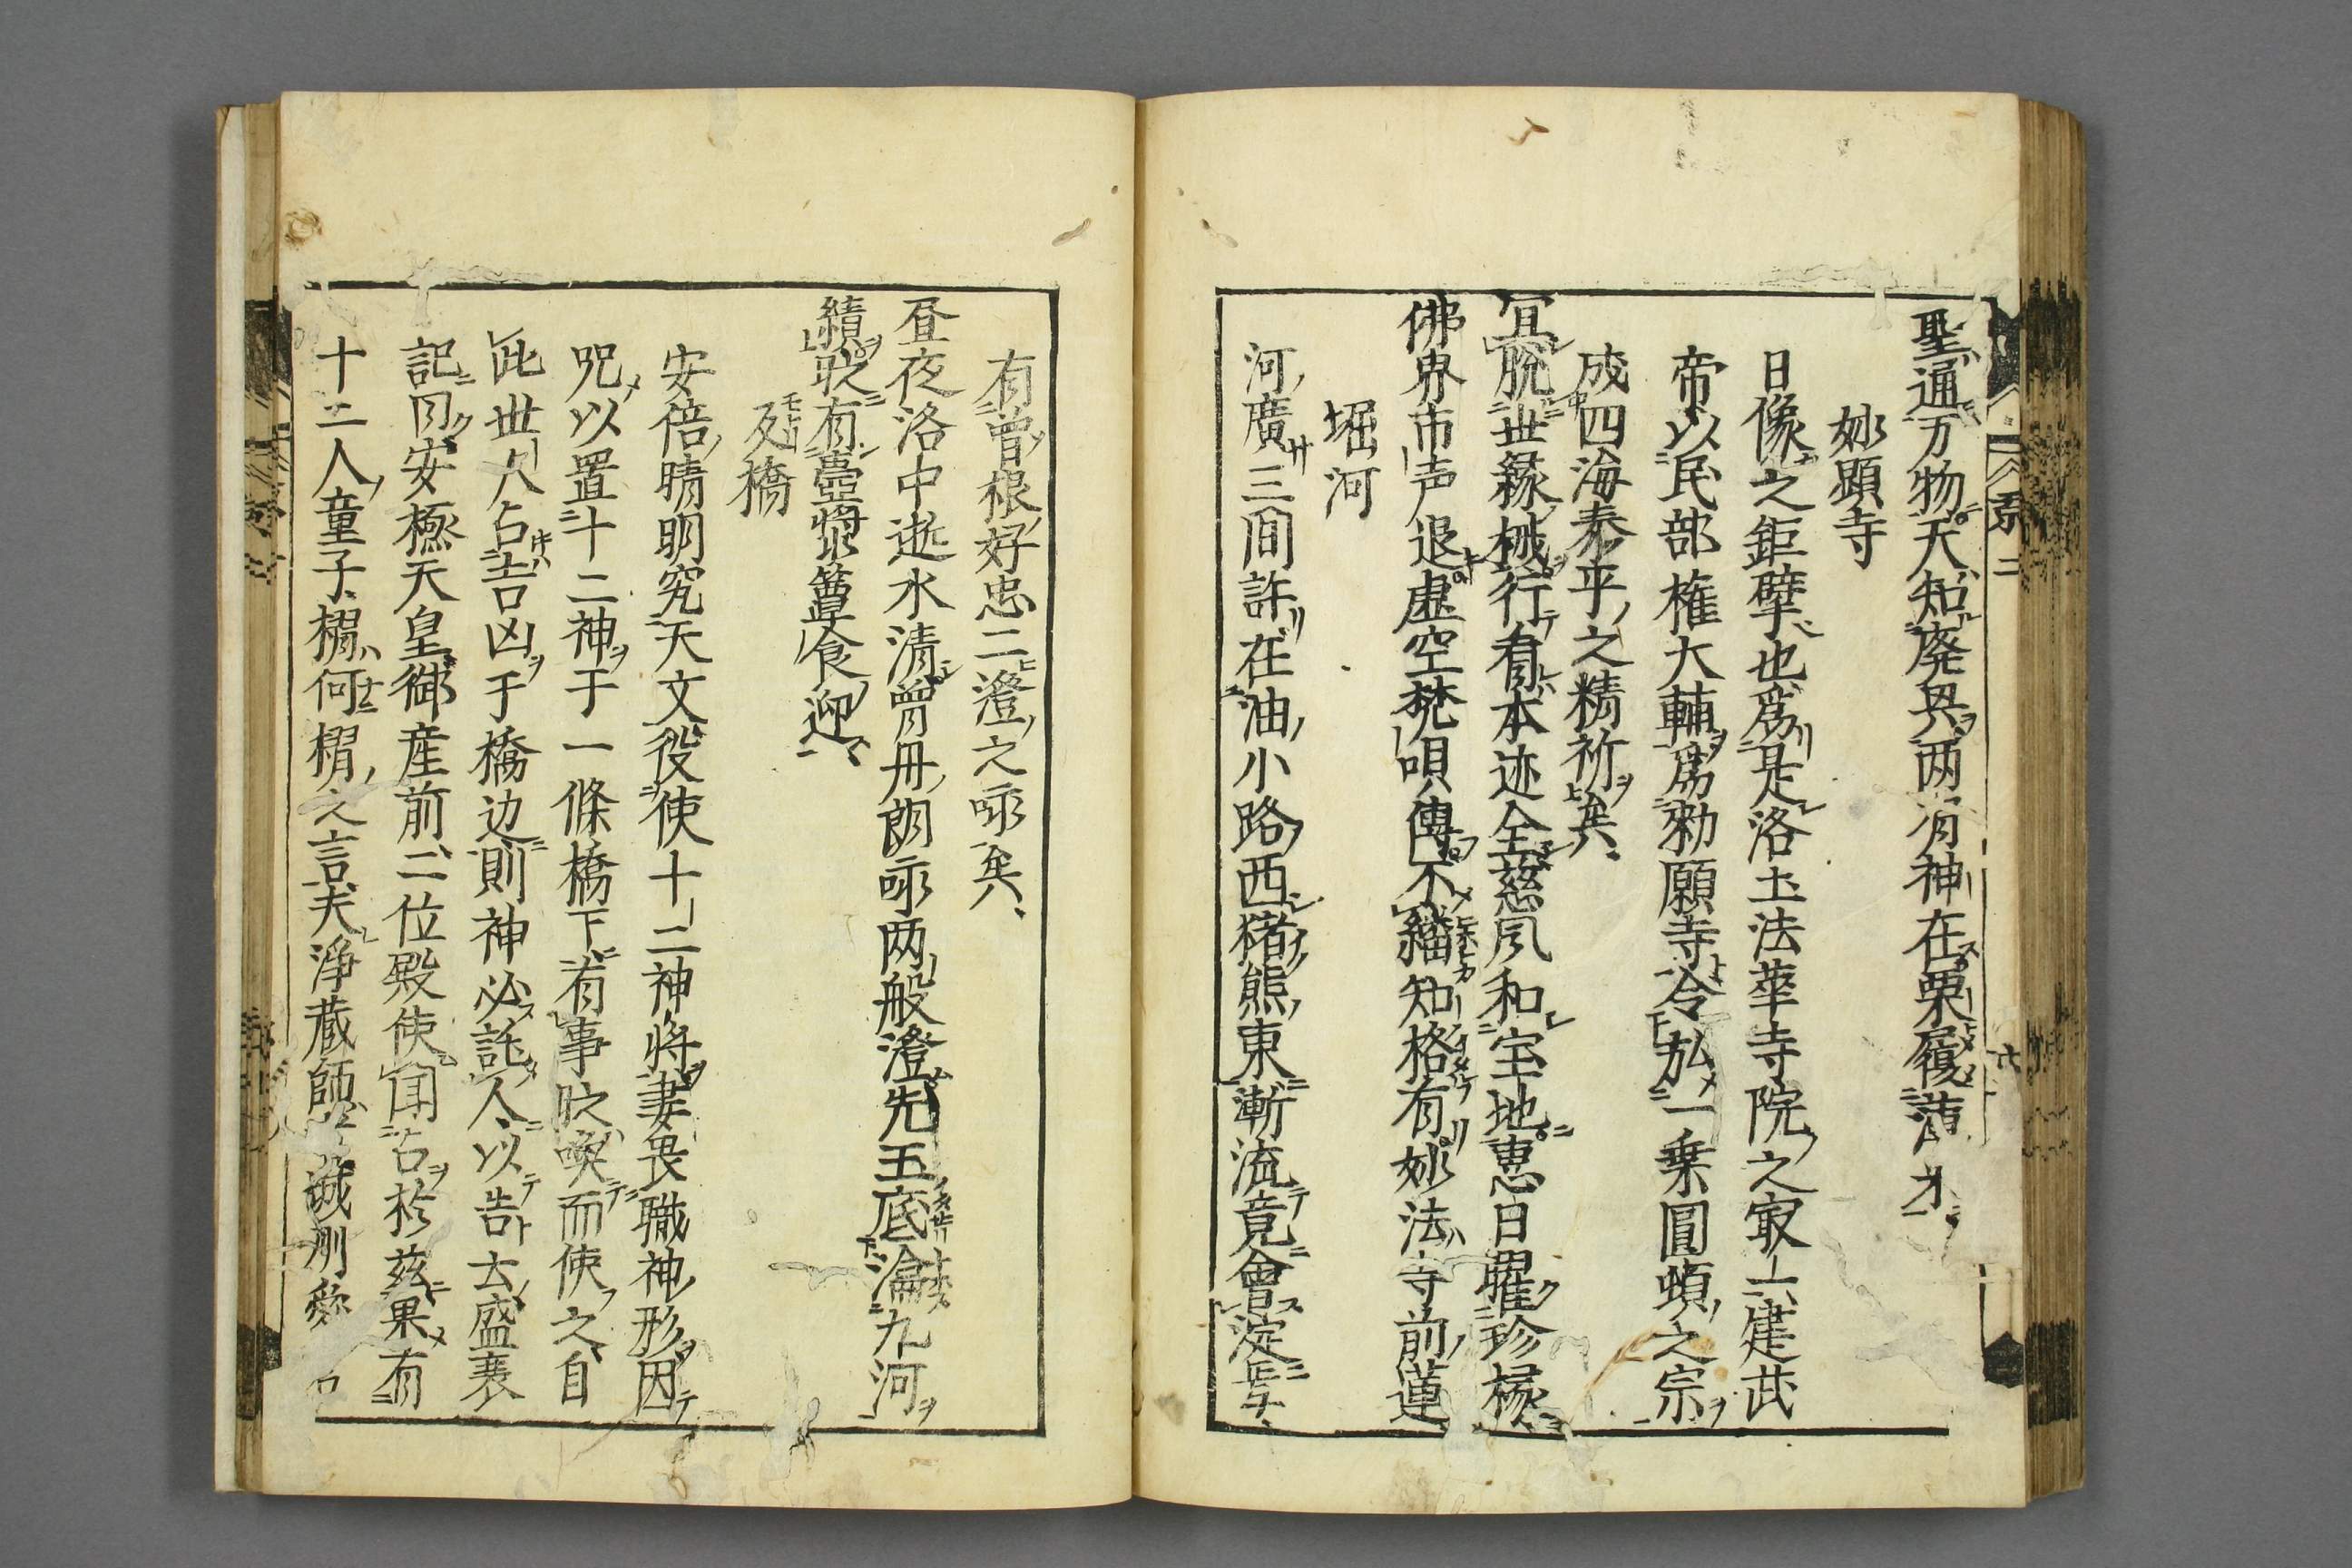 聖通万物天知廃興両有神在栗履薄
妙顕寺
日像之鉅擘也為是洛土法華寺院之冣上建武
帝以民部権大輔為勅願寺令弘一乗圓頓之宗
成四海泰平之精祈矣
冝脱世縁械行看本迹全慈風和宝地恵日羅珍
佛界市声退虚空梵唄傳不繙知格有妙法寺前蓮
堀河
河廣三間許在油小路西猪熊東漸流竟會淀
有曽根好忠二澄之咏矣
昼夜洛中逝水清曽丹朗咏両般澄先五底瀹九河
績時有壷漿簞食迎
戻橋
モドリ
安倍晴明究天文役使十二神将妻畏職神形因
咒以置十二神于一條橋下有事時喚而使之自
此世人占吉凶于橋边則神必託人以告去盛衰
記曰安極天皇御産前二位殿使聞占於茲果有
十二人童子榻何榻之言夫浄蔵師